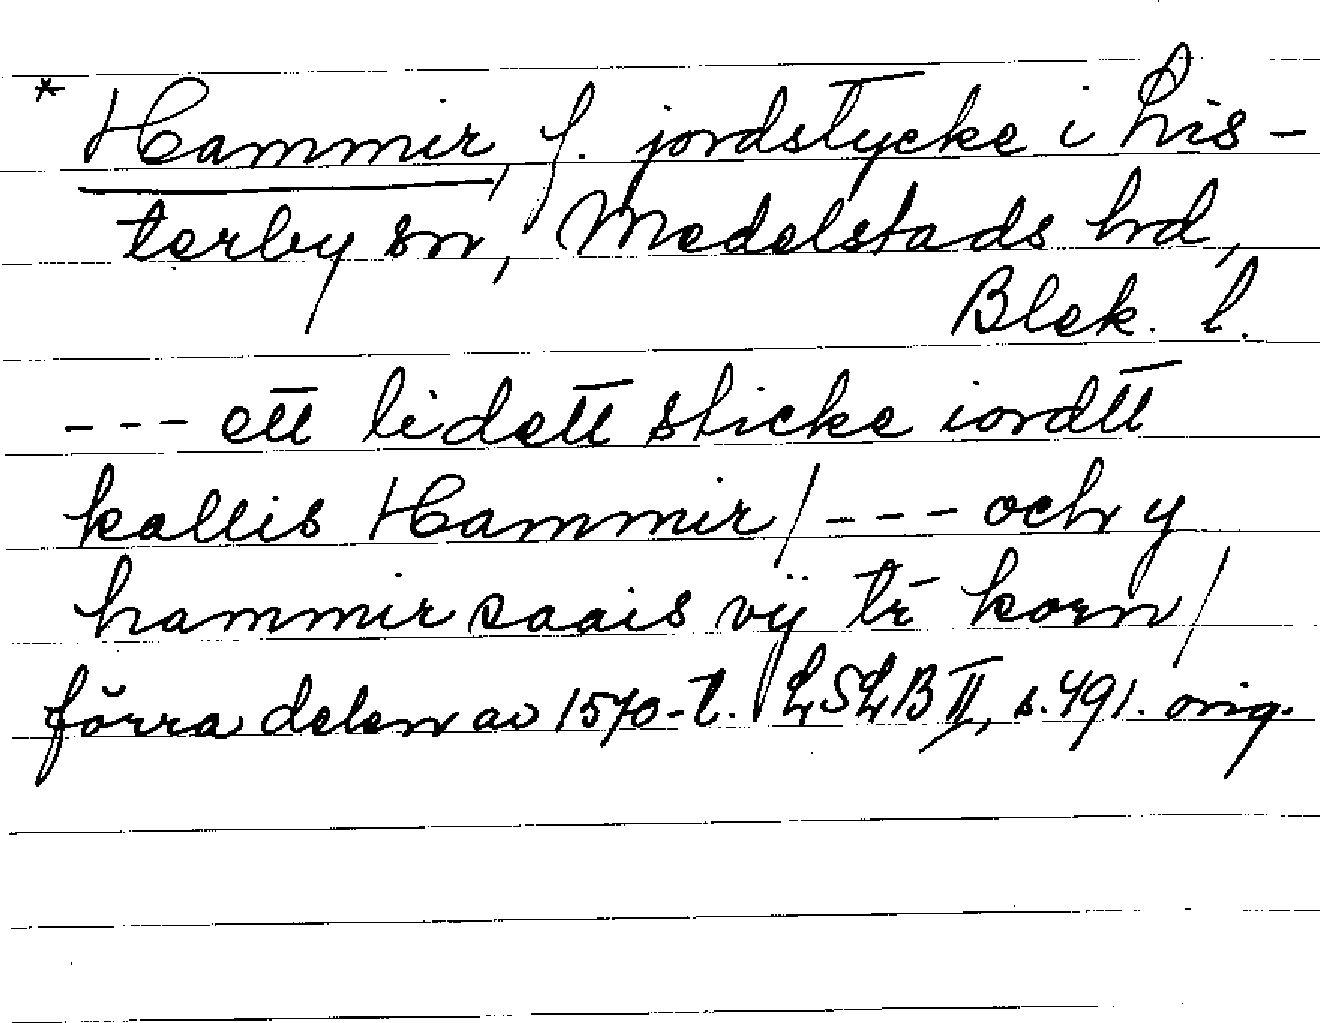 * Hammir, f. jordstycke i Lis-
terby sn, Medelstads hd,
Blek. l.
--- ett lidett sticke iordtt
kallis Hammir / --- och y
hammir saais vij tr̄ korn /
förra delen av 1570-t. LSLB II, s. 491. orig.